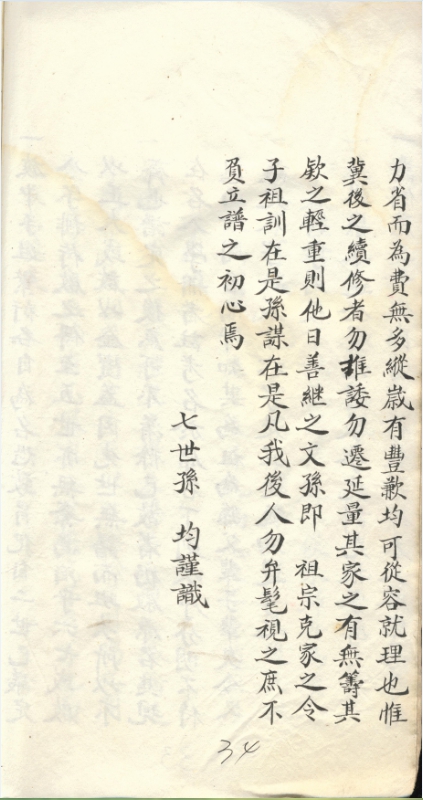 力省而為費無多縱歲有豐歉均可從容就理也惟
冀後之續修者勿推諉勿遷延量其家之有無籌其
欵之輕重則他日善繼之文孫即 祖宗克家之令
子祖訓在是孫謀在是凡我後人勿弁髦視之庶不
負立譜之初心焉
七世孫 均謹識
34